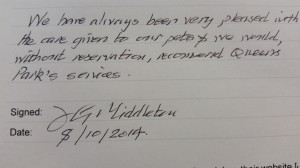 We have always been very pleased with
the care given to our pets & we would,
without reservation, recommend Queens
Park's services.
Signed: Middleton
Date: 8/10/2014.